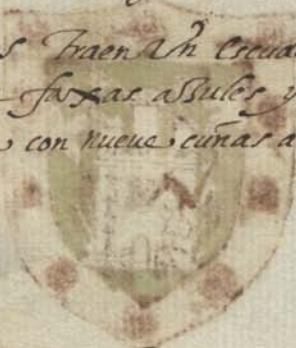 s traen Un escud
faxas assules y
con nueve cuñas a